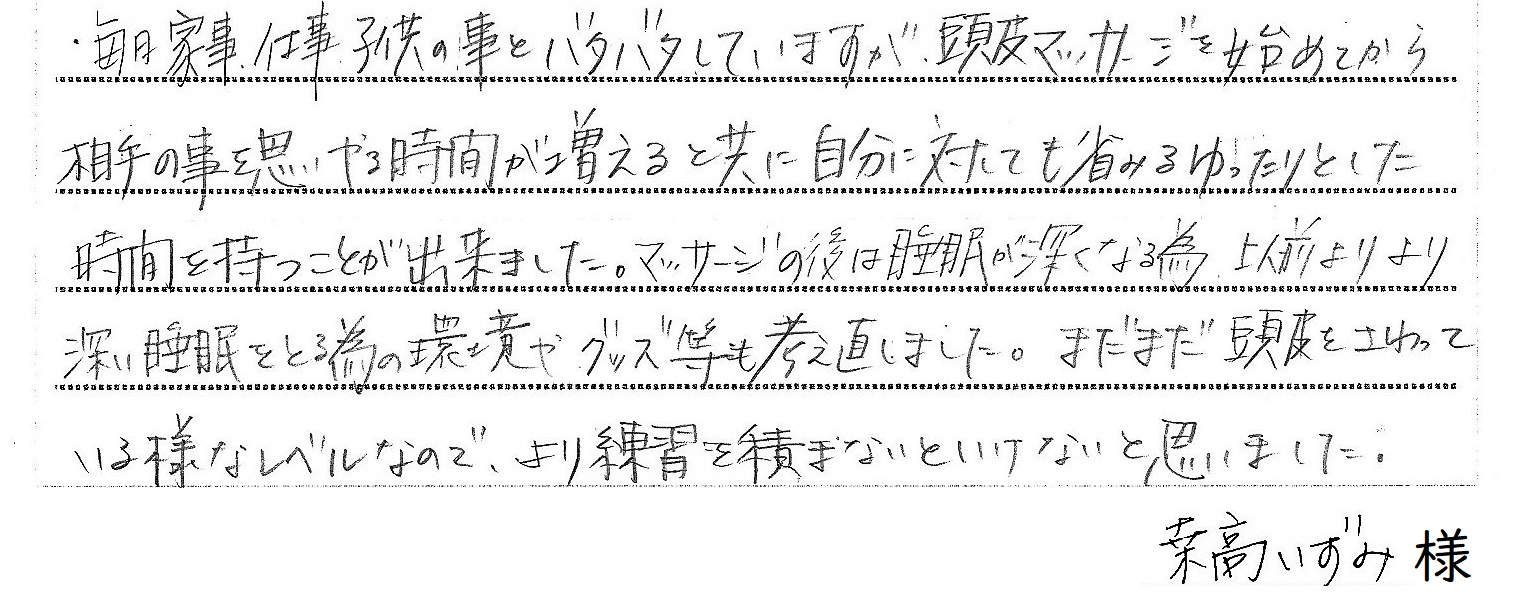 ・毎日家事、仕事、子供の事とバタバタしていますが、頭皮マッサージを始めてから
相手の事を思いやる時間が増えると共に自分に対しても省みるゆったりとした
時間を持つことが出来ました。マッサージの後は睡眠が深くなる為、以前よりより
深い睡眠をとる為の環境やグッズ等も考え直しました。まだまだ頭皮をさわって
いる様なレベルなので、より練習を積まないといけないと思いました。
高いずみ 様